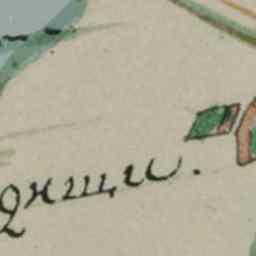 днщи.